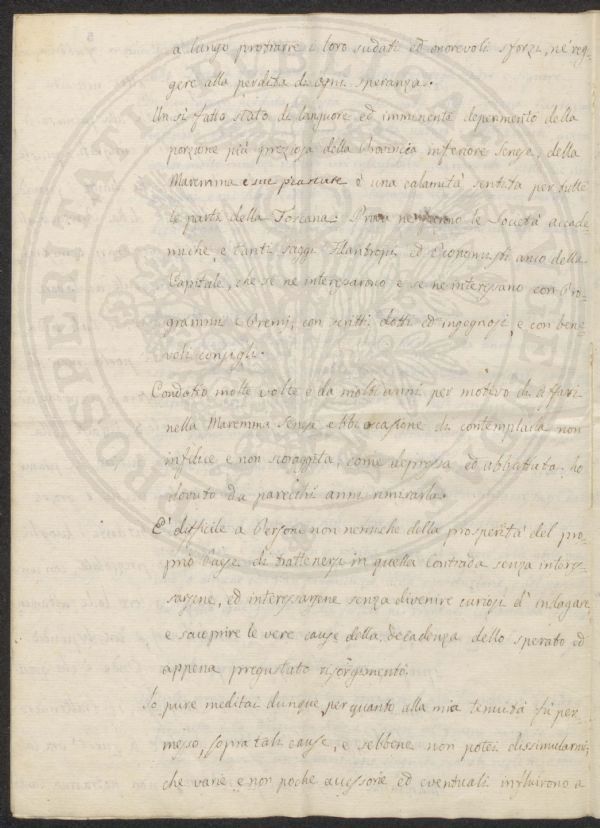 a lungo protrarre i loro sudati ed onorevoli sforzi, nè reg-
gere alla perdita di ogni speranza.
Un sì fatto stato di languore ed imminente deperimento della
porzione più preziosa della Provincia inferiore senese, della
Maremma e sue è una calamità sentita per tutte
le parti della Toscana: Prova ne le Società accade-
miche, e tanti saggi Filantropi, ed Economisti anco della
Capitale, che se ne interessarono e se ne interessano con Pro-
grammi e Premj, con scritti dotti ed ingegnosi, e con bene-
voli consigli.
Condotto molte volte e da molti anni per motivo di affari
nella Maremma senese ebbi occasione di contemplarla non
infelice e non scoraggita, come depressa ed abbattuta ho
dovuto da parecchi anni rimirarla.
E' difficile a Persone non nemiche della prosperità del pro-
prio Paese di trattenersi in quella Contrada senza interes-
sarsene, ed interessarsene senza divenire curiosi d' indagare
e scuoprire le vere cause della decadenza dello sperato ed
appena pregustato risorgimento.
Io pure meditai dunque, per quanto alla mia tenuità fù per-
messo, sopra tali cause, e sebbene non potei dissimularmi,
che varie e non poche accessorie ed eventuali influirono a
PROSPERITATI PUBLICAE AUGENDAE